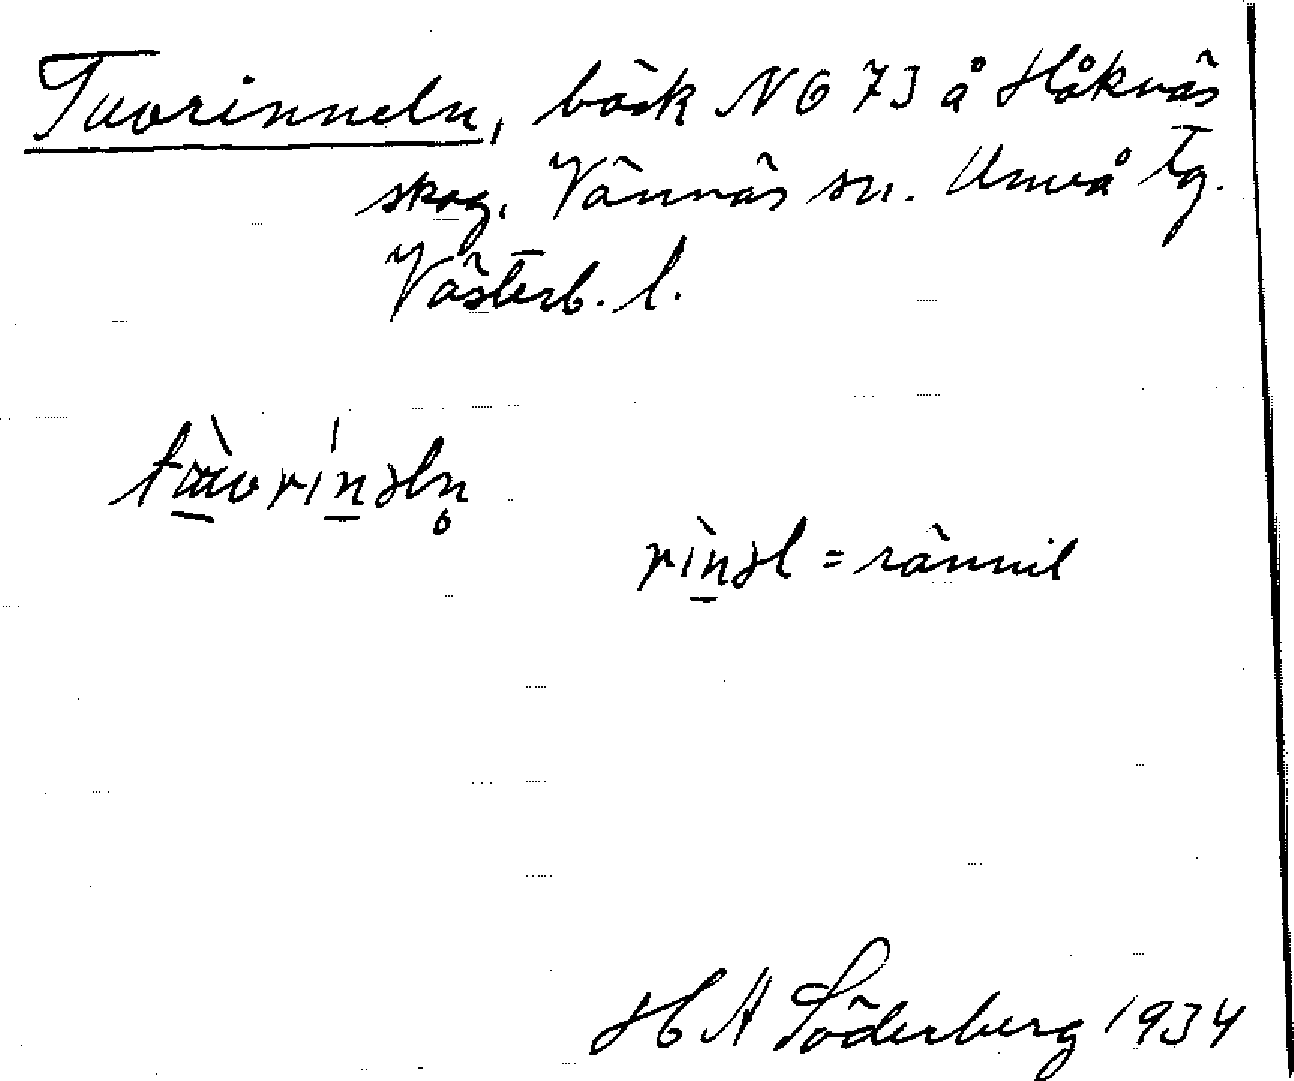 Tuvorinneln, bäck N 6 73 å Håknäs
skog. Vännäs sn. Umeå tg.
Västerb. l.
rìnəl = rännil
H A Söderberg 1934